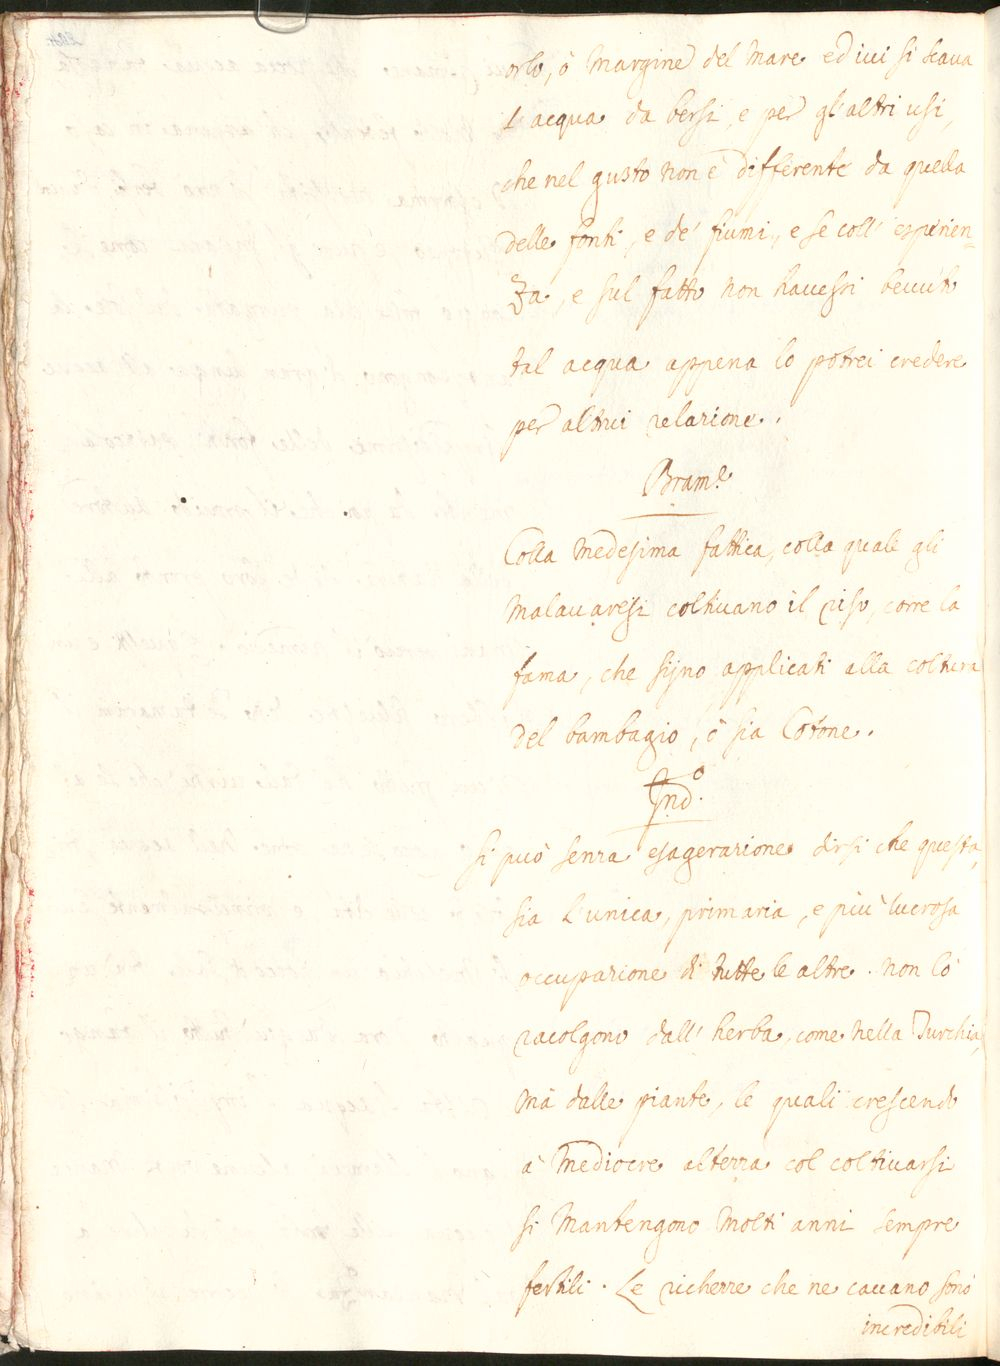 orlo, ò margine del mare ed iui si scaua
l'acqua da bersi, e per gl'altri usi,
che nel gusto non è differente da quella
delle fonti, e de' fiumi, e se coll' esperien=
za, e sul fatto non havessi beuuto
tal acqua appena lo potrei credere
per altrui relazione.
Bram.e
Colla medesima fattica, colla quale gli
Malauaresi coltiuano il riso, corre la
fama, che sijno applicati alla coltura
del bambagio, ò sia Cotone.
Ind.o
Si può senza esagerazione dirsi che questa
sia l'unica, primaria, e più lucrosa
occupazione di tutte le altre. non lo
racolgono dall' herba, come nella Turchia,
mà dalle piante, le quali crescendo
à mediocre altezza col coltiuarsi
si mantengono molti anni sempre
fertili. Le richezze che ne cauano sono
incredibili